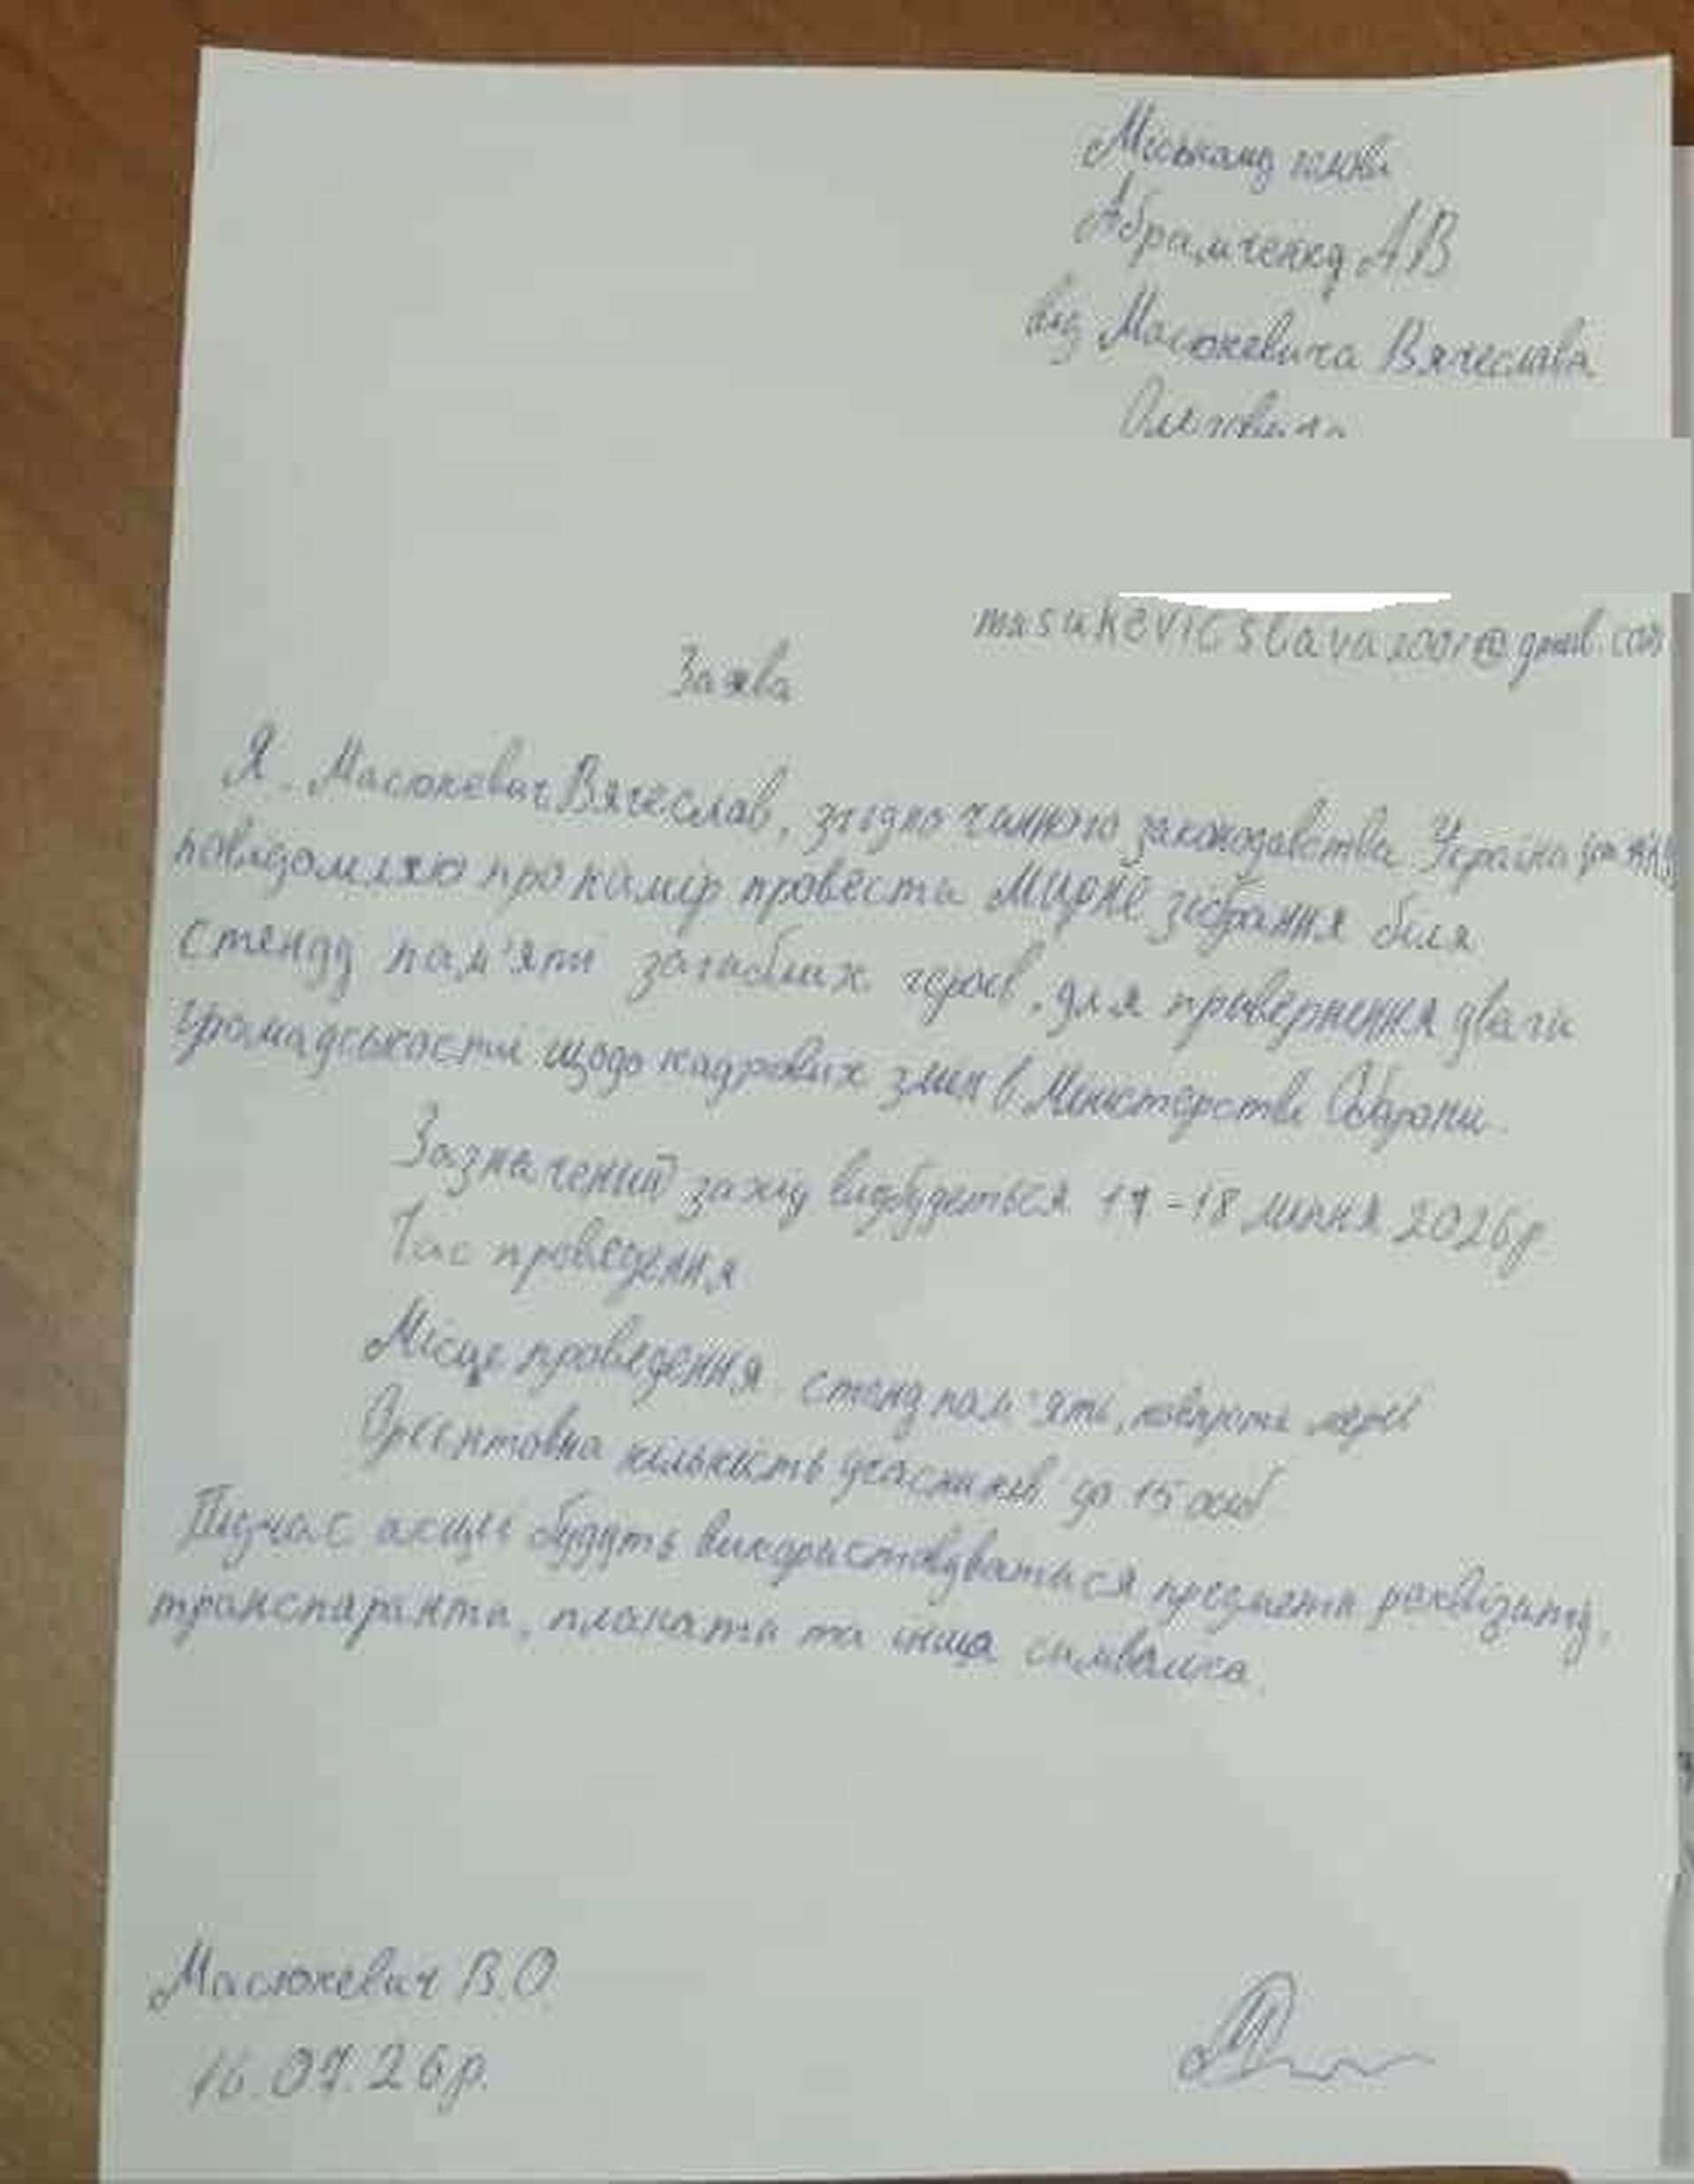 Міському голові
Абрамченку А.В
від Масюкевича Вячеслава
Заява
Я Масюкевич Вячеслав, згідно чинного законодавства України
повідомляю про намір провести Мирне зібрання біля
стенду пам'яті загиблих героїв, для привернення уваги
громадськості щодо кадрових змін в Міністерстві Оборони
Зазначений захід відбудеться 17-18 липня 2026р
Час проведення
Місце проведення стенд пам'яті, навпроти мерії
Орієнтовна кількість учасників до 15 осіб
Підчас акції будуть використовуватися предмети реквізиту,
транспаранти, плакати та інша символіка.
Масюкевич В.О.
16.07.26р.